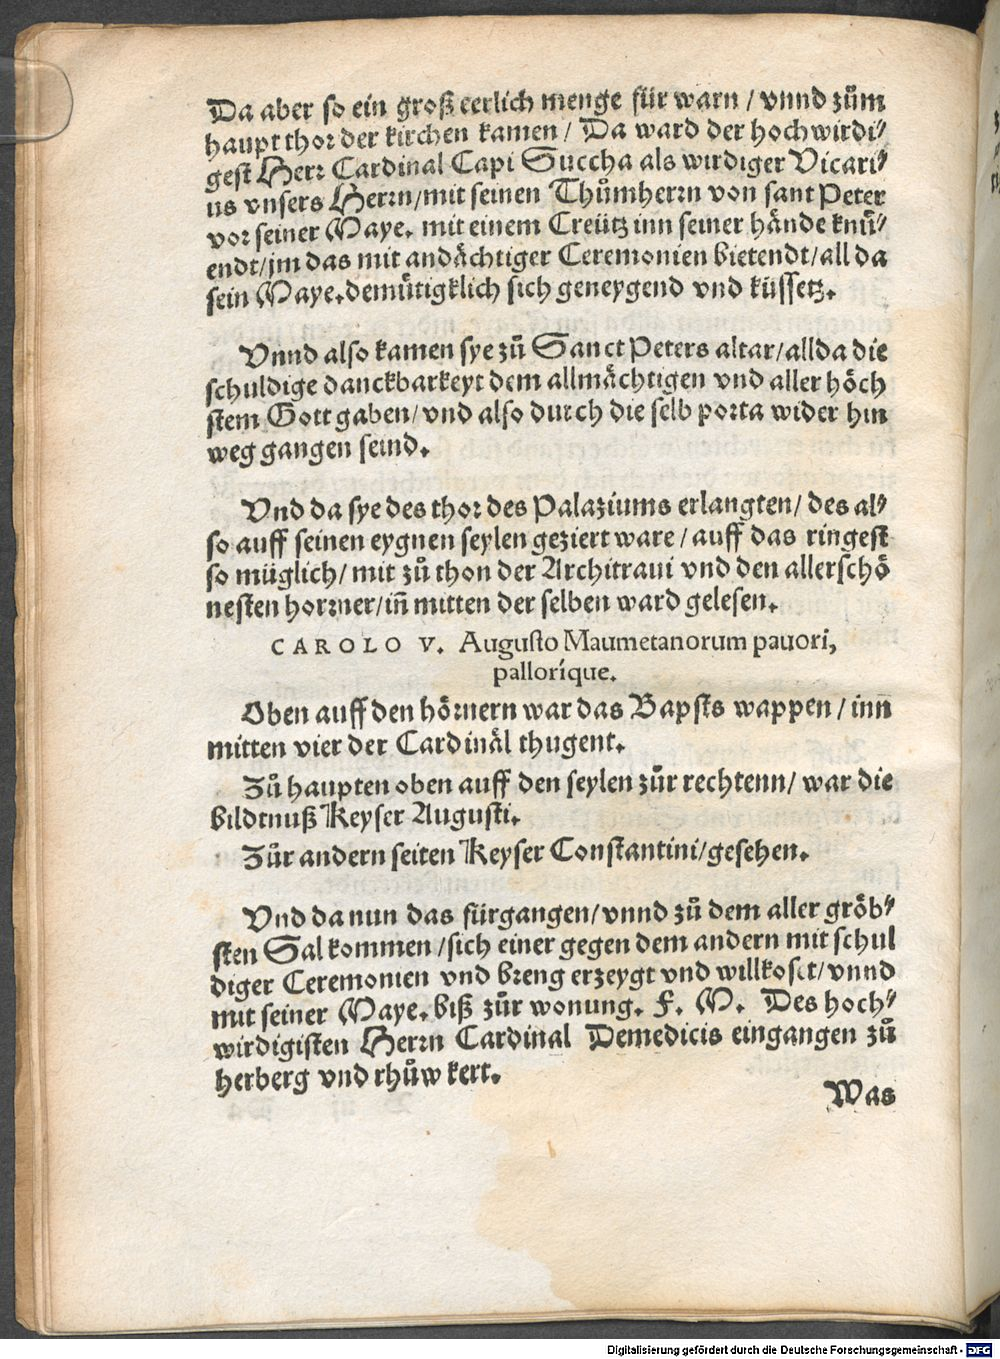 Da aber so ein groß eerlich menge für warn / vnnd zům
haupt thor der kirchen kamen / Da ward der hochwirdi⸗
gest Herr Cardinal Capi Succha als wirdiger Vicari⸗
us vnsers Herrn/mit seinen Thůmherrn von sant Peter
vor seiner Maye. mit einem Creütz inn seiner hände knü⸗
endt/jm das mit andächtiger Ceremonien bietendt/all da
sein Maye.demütigklich sich geneygend vnd küssetz.
Vnnd also kamen sye zů Sanct Peters altar/allda die
schuldige danckbarkeyt dem allmächtigen vnd aller höch
stem Gott gaben/vnd also durch die selb porta wider hin
weg gangen seind.
Vnd da sye des thor des Palaziums erlangten/ des al⸗
so auff seinen eygnen seylen geziert ware / auff das ringest
so müglich/ mit zů thon der Architraui vnd den allerschö
nesten horzner/in̄ mitten der selben ward gelesen.
CAROLO V. Augusto Maumetanorum pauori,
pallorique.
Oben auff den hörnern war das Bapsts wappen / inn
mitten vier der Cardinäl thugent.
Zů haupten oben auff den seylen zůr rechtenn/ war die
bildtnuß Keyser Augusti.
Zůr andern seiten Keyser Constantini/gesehen.
Vnd da nun das fürgangen/vnnd zů dem aller gröb⸗
sten Sal kommen /sich einer gegen dem andern mit schul
diger Ceremonien vnd breng erzeygt vnd willkoset/vnnd
mit seiner Maye.biß zůr wonung. F. M. Des hoch⸗
wirdigisten Herrn Cardinal Demedicis eingangen zů
herberg vnd rhůw kert.
Was
Digitalisierung gefördert durch die Deutsche Forschungsgemeinschaft - DFG